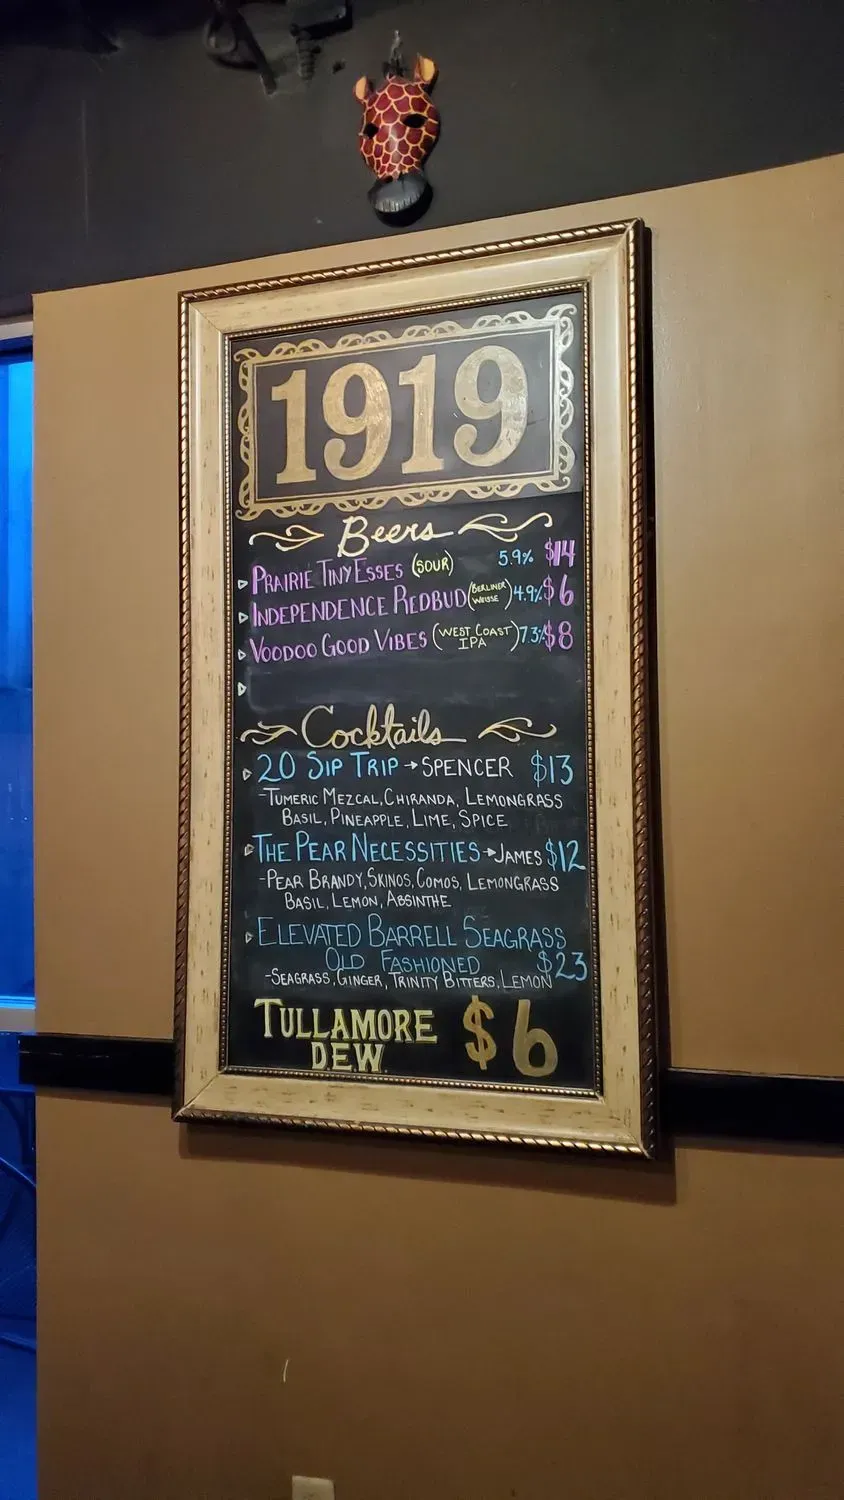 1919
Beers
PRAIRIE TINY ESSES (SOUR) 5.9% $14
INDEPENDENCE REDBUD (BERLINER WEISSE) 4.9% $6
VOODOO GOOD VIBES (WEST COAST IPA) 7.3% $8
Cocktails
20 SIP TRIP → SPENCER $13
-TUMERIC MEZCAL, CHIRANDA, LEMONGRASS
BASIL, PINEAPPLE, LIME, SPICE
THE PEAR NECESSITIES → JAMES $12
-PEAR BRANDY, SKINOS, COMOS, LEMONGRASS
BASIL, LEMON, ABSINTHE
ELEVATED BARRELL SEAGRASS
OLD FASHIONED $23
-SEAGRASS, GINGER, TRINITY BITTERS, LEMON
TULLAMORE $6
D.E.W.